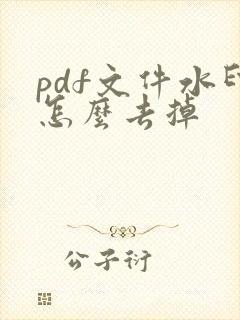 pdf文件水印
怎麼去掉
公子衍